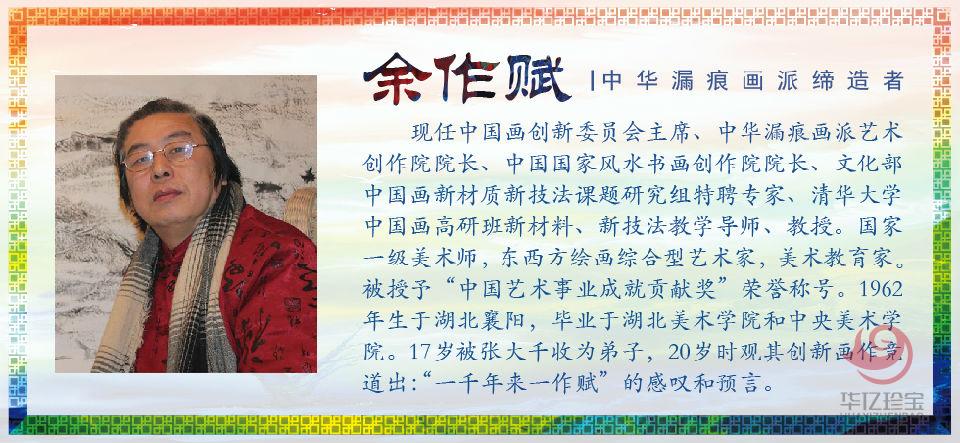 余作赋 |中华漏痕画派缔造者
现任中国画创新委员会主席、中华漏痕画派艺术
创作院院长、中国国家风水书画创作院院长、文化部
中国画新材质新技法课题研究组特聘专家、清华大学
中国画高研班新材料、新技法教学导师、教授。国家
一级美术师，东西方绘画综合型艺术家，美术教育家。
被授予“中国艺术事业成就贡献奖”荣誉称号。1962
年生于湖北襄阳，毕业于湖北美术学院和中央美术学
院。17岁被张大千收为弟子，20岁时观其创新画作竟
道出：“一千年来一作赋”的感叹和预言。
华亿珍宝
HUAYIZHENBAO